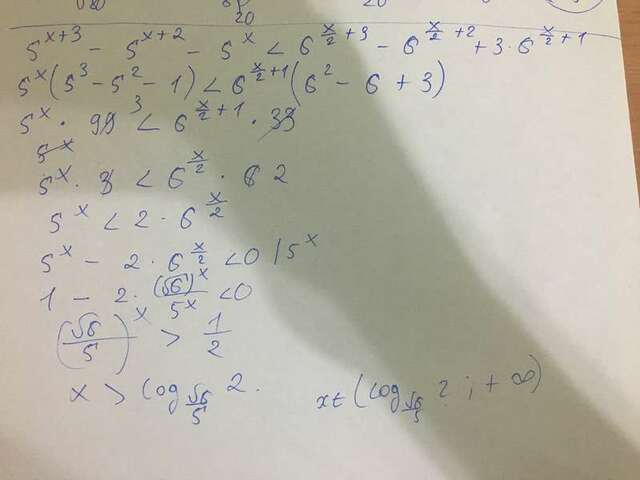 5^{x+3} - 5^{x+2} - 5^x < 6^{\frac{x}{2}+3} - 6^{\frac{x}{2}+2} + 3 \cdot 6^{\frac{x}{2}+1}
5^x (5^3 - 5^2 - 1) < 6^{\frac{x}{2}+1} (6^2 - 6 + 3)
5^x \cdot 99^3 < 6^{\frac{x}{2}+1} \cdot 33
5^x
5^x \cdot 3 < 6^{\frac{x}{2}} \cdot 6 2
5^x < 2 \cdot 6^{\frac{x}{2}}
5^x - 2 \cdot 6^{\frac{x}{2}} < 0 | 5^x
1 - 2 \cdot \frac{(\sqrt{6})^x}{5^x} < 0
(\frac{\sqrt{6}}{5})^x > \frac{1}{2}
x > log_{\frac{\sqrt{6}}{5}} 2 .
x ∈ (log_{\frac{\sqrt{6}}{5}} 2 ; + ∞)
20
20